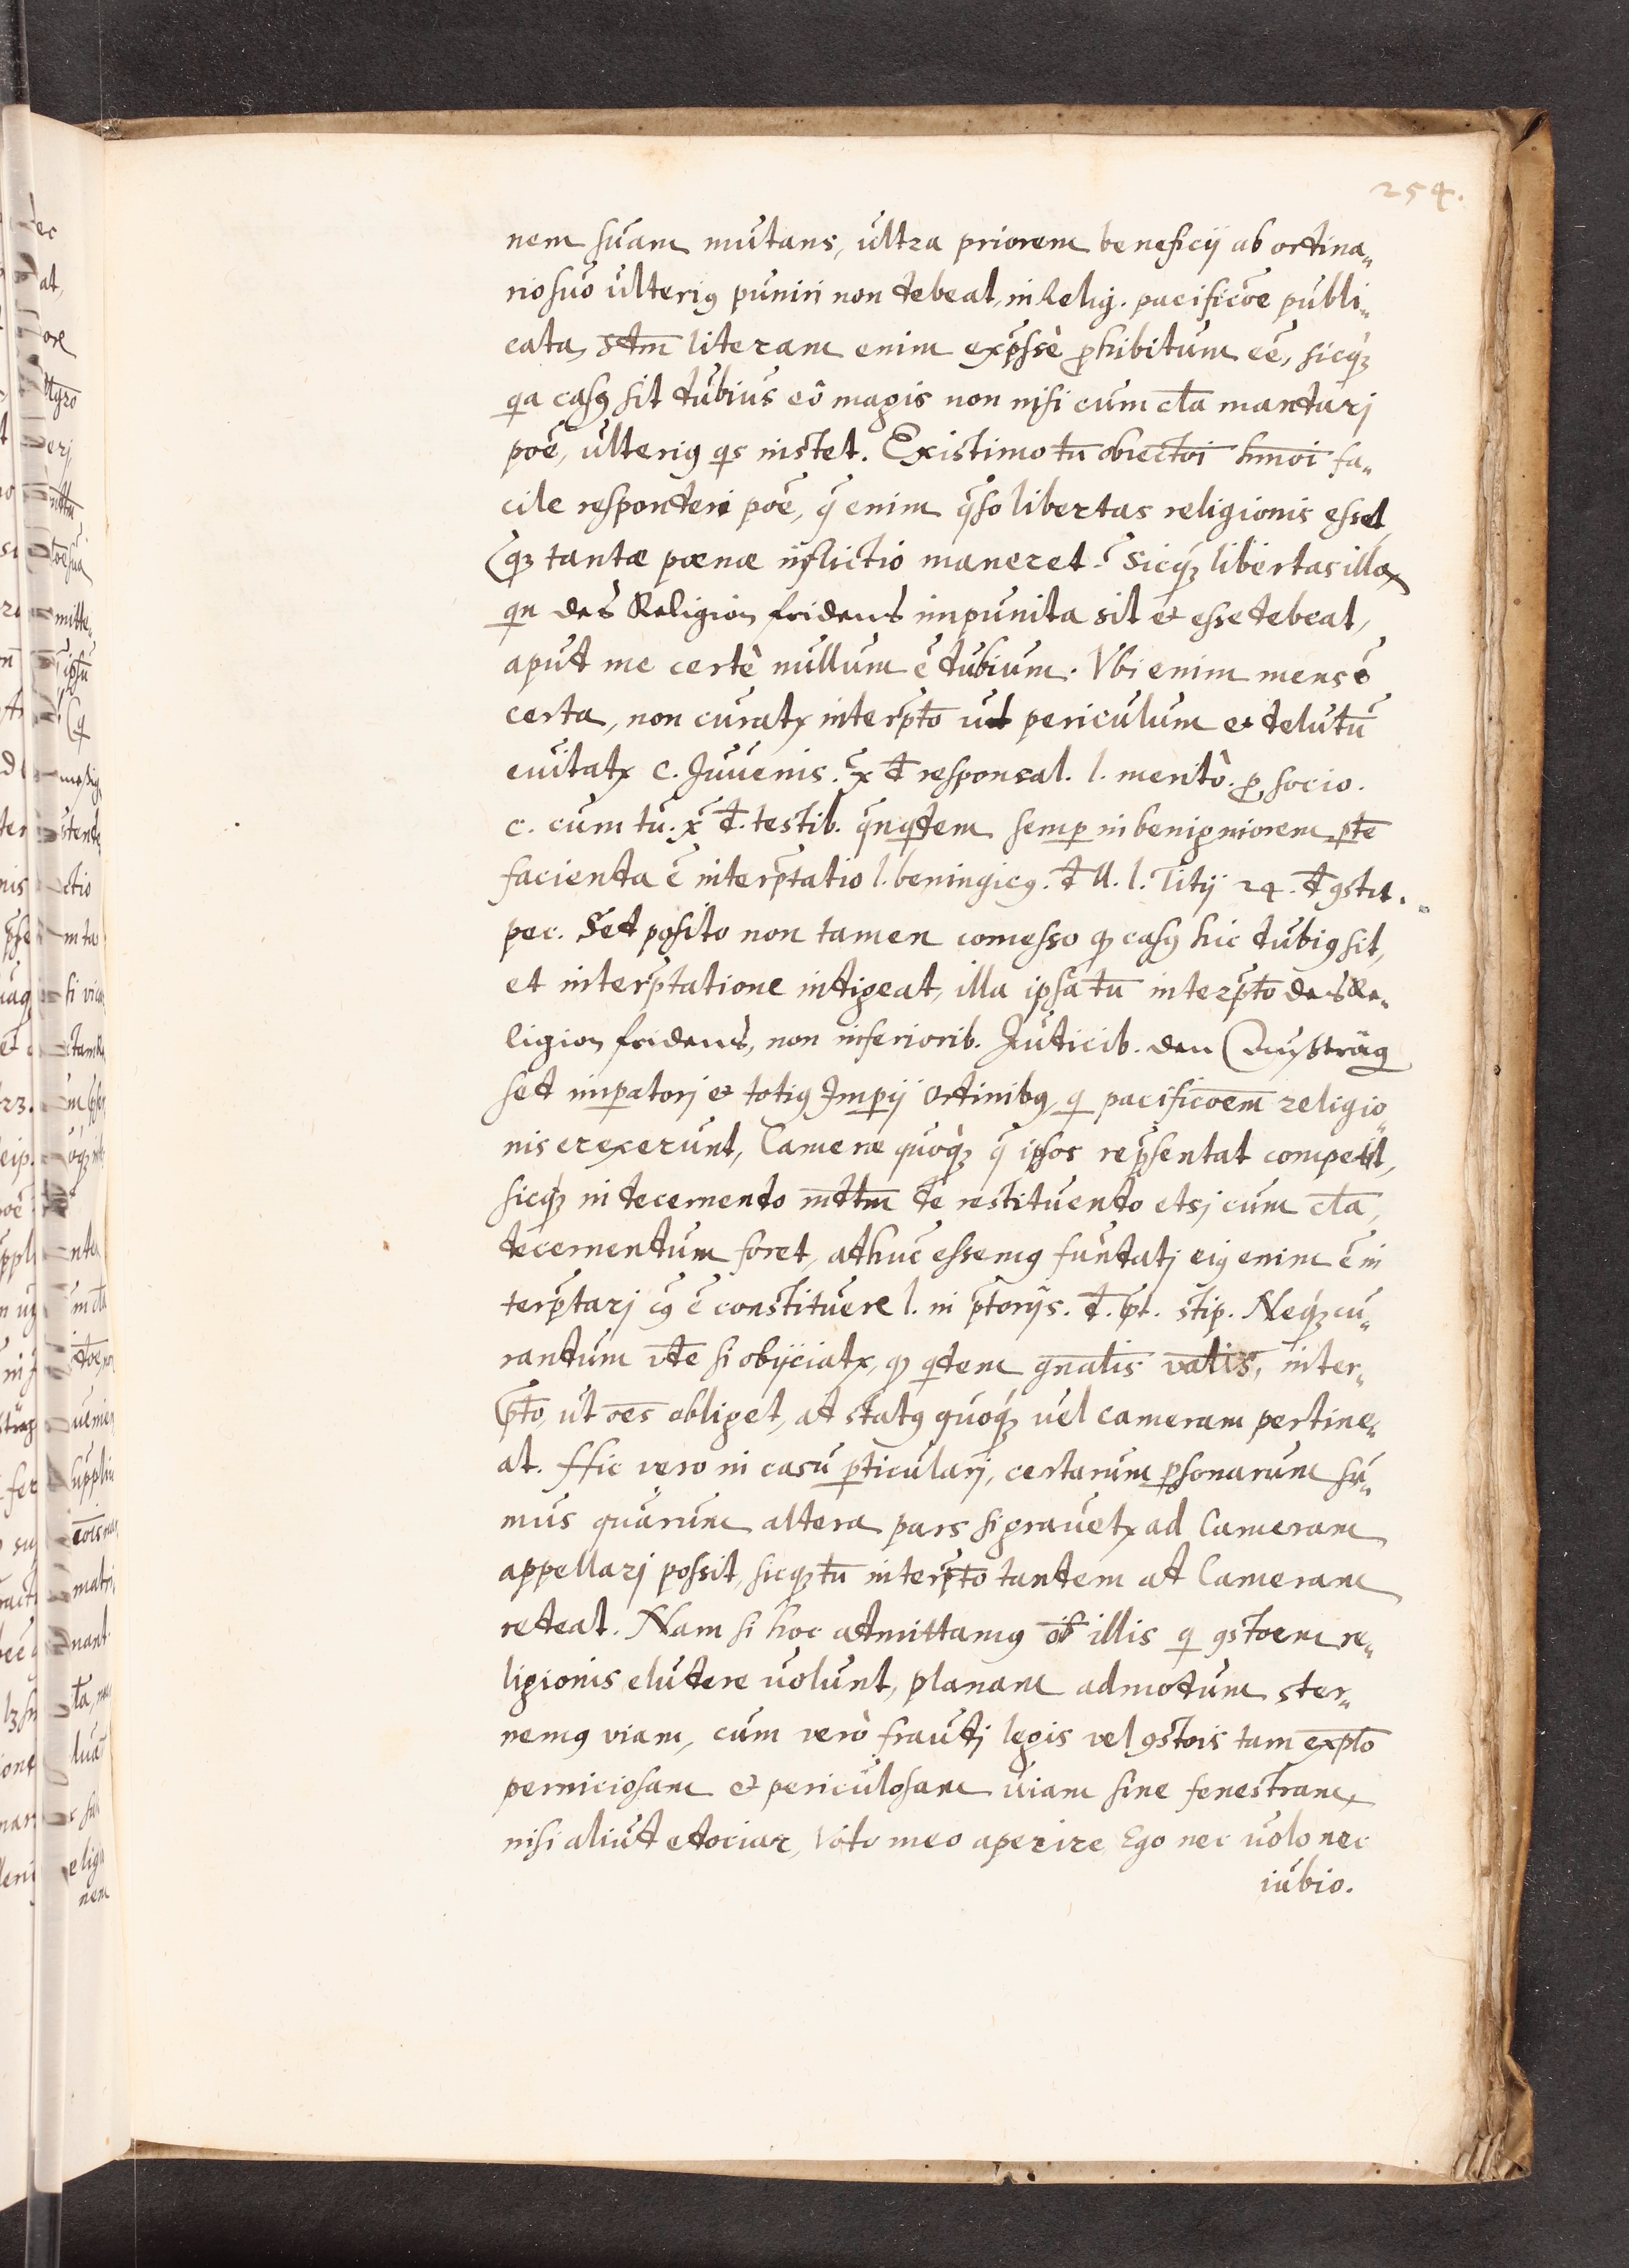 254.
nem suam mutans, ultra priorem beneficij ab ordina„
rio suo ulterig puniri non debeat, in Relig. pacificõe publi„
cata, sdm literam enim expsse phibitum eē, sicq3
qa casg sit dubius eô magis non nisi cum cla mandarj
poē, ulterig qs instet. Existimo tn obiectoi hmoi fa„
cile responderi poē, q enim qso libertas religionis esset,
q3 tantæ pœnæ inflictio maneret? Sicq3 libertas illa
qn des Religion fridens impunita sit et esse debeat,
apud me certè nullum ē dubium. Vbi enim mens ē
certa, non curatr interpto ut periculum et delutũ
euitatr c. Juvenis. x d responsal. l. meritò. p socio.
c. cum tu. x d. testib. qnqdem semp in benigniorem pte
facienda ē interptatio l. beningicg. d ll. l. Titij 24. d gstit.
pec. Sed posito non tamen comesso qd casg hic dubig sit,
et interptatione indigeat, illa ipsa tn interpto des Re„
ligion fridens, non inferiorib. Judicib. den Außträg
sed impatorj et totig Impij Ordinibg, q pacificoem religio„
nis erexerunt, Cameræ quoq3 q ipsos repsentat competit,
sicq3 in decernendo mdtm de restituendo etsj cum cla,
decernendum foret, adhuc essemg fundatj eig enim ē in
terptarj cg ē constituere l. in ptorijs. d. pt. stip. Neq3 cu„
randum vte si obijciatr, qd qdem gnalis valis, inter„
pto, ut oes obliget, ad statg quoq3 uel cameram pertine„
at. Hic vero in casu pticularj, certarum psonarum su„
mus quarum altera pars si grauetr ad Cameram
appellarj possit, sicq3 tn interpto tandem ad Cameram
redeat. Nam si hoc admittamg oib illis q gstoem re„
ligionis eludere uolunt, planam admodum ster„
nemg viam, cum verò fraudj legis vel gstois tam explo
perniciosam et periculosam uiam sine fenestram,
nisi aliud edociar, Voto meo aperire Ego nec uolo nec
iubio.